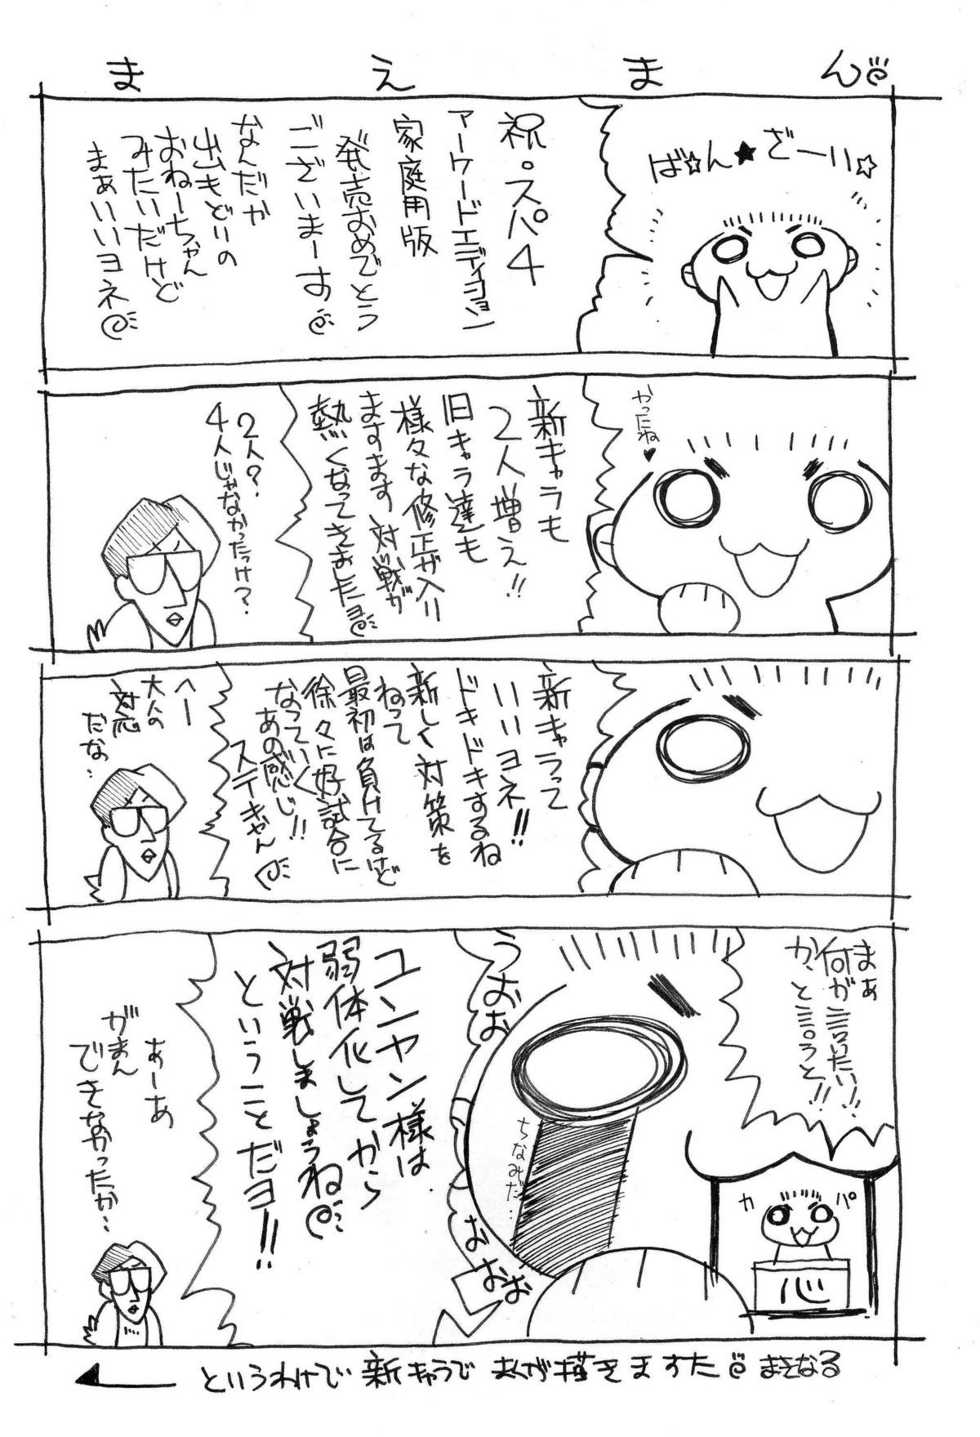 まえまん
ばん★ざーい☆
祝。スパ4
アーケードエディション
家庭用版
発売おめでとう
ございまーす
なんだか
出もどりの
おねーちゃん
みたいだけど
まぁいいヨネ
やったね♥
新キャラも
2人増え!!
旧キャラ達も
様々な修正が入り
ますます対戦が
熱くなってきましたヨ
2人?
4人じゃなかったっけ?
新キャラって
いいヨネ!!
ドキドキするね
新しく対策を
ねって
最初は負けてるけど
徐々に好試合に
なっていく
あの感じ!!
ステキやん
へー
大人の
対応
だな…
まぁ
何が言いたい!!
か、と言うと!!
カパ
心
うおお
おおおお
ちなみだ…
ユンヤン様は
弱体化してから
対戦しましょうね
ということだヨ!!
あーあ
がまん
できなかったか…
というわけで新キャラでまんが描きますた まさなる